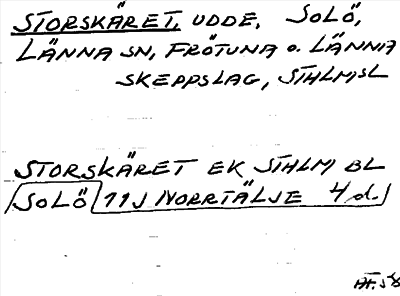 STORSKÄRET, UDDE, SOLÖ,
LÄNNA SN, FRÖTUNA O. LÄNNA
SKEPPSLAG, STHLMSL
STORSKÄRET EK STHLM BL
SOLÖ 11J NORRTÄLJE 4 d.